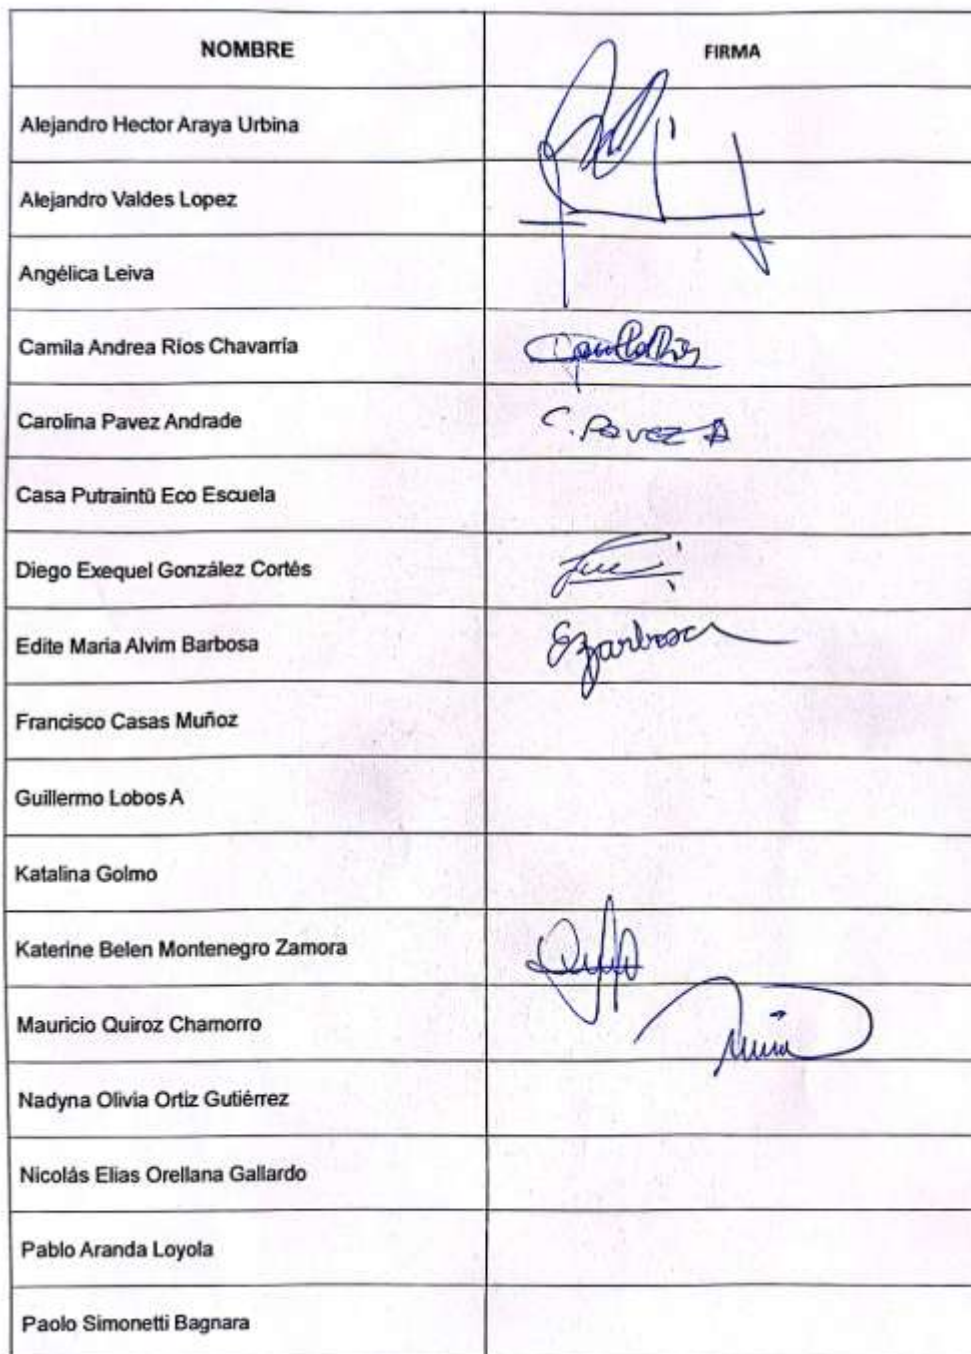 NOMBRE FIRMA
Alejandro Hector Araya Urbina
Alejandro Valdes Lopez
Angélica Leiva
Camila Andrea Ríos Chavarría
Carolina Pavez Andrade C. Pavez A
Casa Putraintü Eco Escuela
Diego Exequel González Cortés
Edite Maria Alvim Barbosa
Francisco Casas Muñoz
Guillermo Lobos A
Katalina Golmo
Katerine Belen Montenegro Zamora
Mauricio Quiroz Chamorro
Nadyna Olivia Ortiz Gutiérrez
Nicolás Elias Orellana Gallardo
Pablo Aranda Loyola
Paolo Simonetti Bagnara